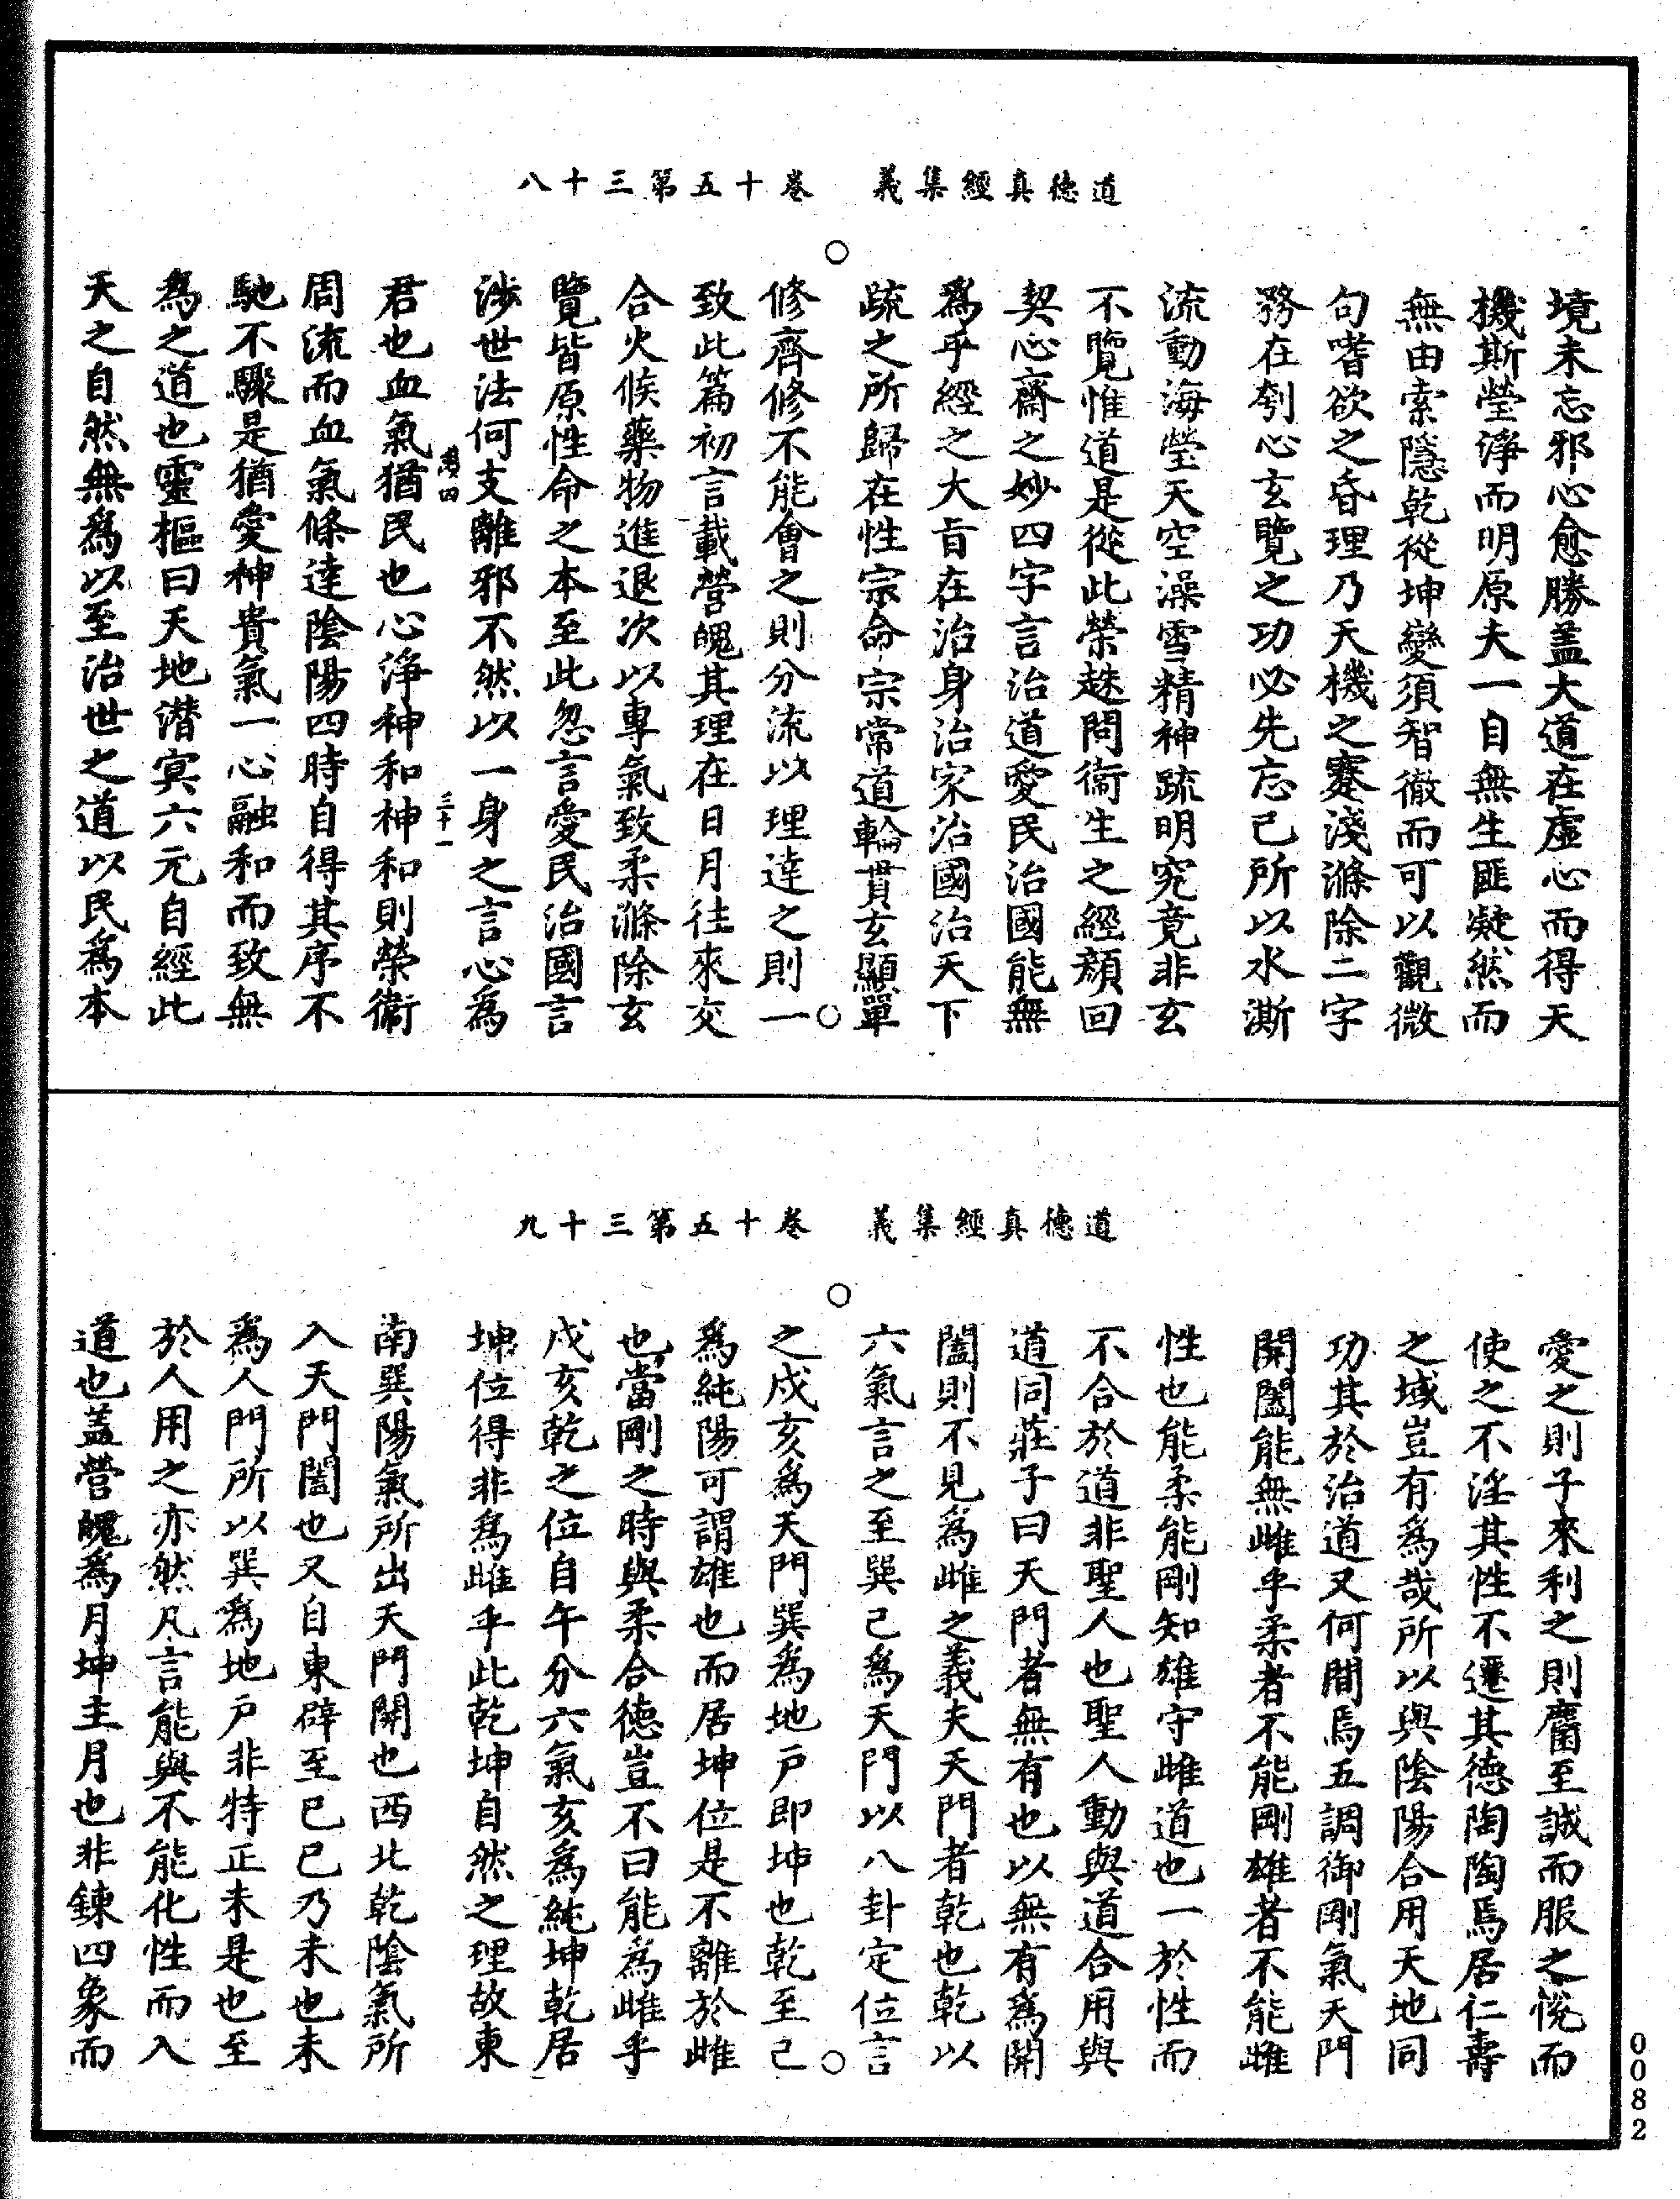 道德真經集義　卷十五第三十八
境未忘邪心愈勝盖大道在虛心而得天
機斯瑩淨而明原夫一自無生匪凝然而
無由索隱乾從坤變須智徹而可以觀微
句嗜欲之昏理乃天機之蹇淺滌除二字
務在刳心玄覽之功必先忘己所以水澌
流動海瑩天空澡雪精神疏明究竟非玄
不覽惟道是從此榮趎問衞生之經顏回
契心齋之妙四字言治道愛民治國能無
爲乎經之大旨在治身治家治國治天下
䟽之所歸在性宗命宗常道輪貫玄顯單
修齊修不能會之則分流以理達之則一
致此篇初言載營魄其理在日月往來交
合火候藥物進退次以專氣致柔滌除玄
覽皆原性命之本至此忽言愛民治國言
涉世法何支離邪不然以一身之言心為
三十一
君也血氣猶民也心淨神和神和則榮衞
周流而血氣條達陰陽四時自得其序不
馳不驟是猶愛神貴氣一心融和而致無
為之道也靈樞曰天地潜㝠六元自經此
天之自然無爲以至治世之道以民爲本
道德真經集義　卷十五第三十九
愛之則子來利之則麕至誠而服之恱而
使之不淫其性不遷其德陶陶焉居仁壽
之域豈有爲哉所以與陰陽合用天地同
功其於治道又何間焉五調御剛氣天門
開闔能無雌乎柔者不能剛剛雄者不能雌
性也能柔能剛知雄守雌道也一於性而
不合於道非聖人也聖人動與道合用與
道同莊子曰天門者無有也以無有爲開
闔則不見爲雌之義夫天門者乾也乾以
六氣言之至巽己爲天門以八卦定位言
之戌亥爲天門巽為地户即坤也乾至己
爲純陽可謂雄也而居坤位是不離於雌
也當剛之時與柔合德豈不曰能為雌乎
戌亥乾之位自午分六氣亥爲純坤乾居
坤位得非爲雌乎此乾坤自然之理故東
南巽陽氣所出天門開也西北乾陰氣所
入天門闔也又自東辟至已已乃未也未
爲人門所以巽爲地户非特正未是也至
於人用之亦然凡言能與不能化性而入
道也盖營魄爲月坤主月也非鍊四象而
0082